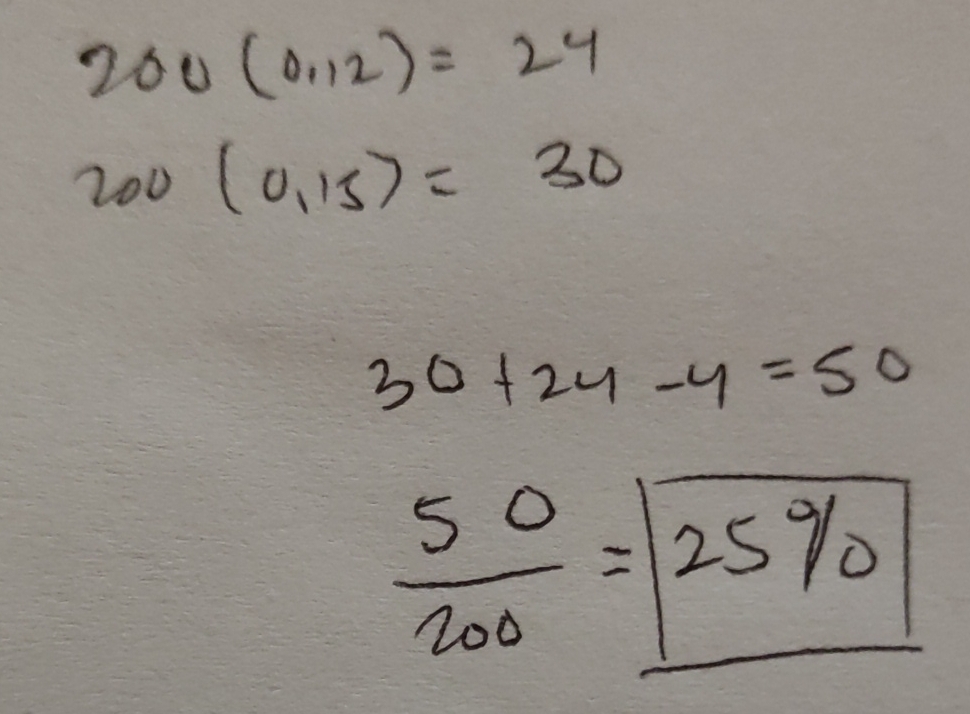 200 (0.12) = 24
200 (0.15) = 30
30 + 24 - 4 = 50
50
200
= 25%